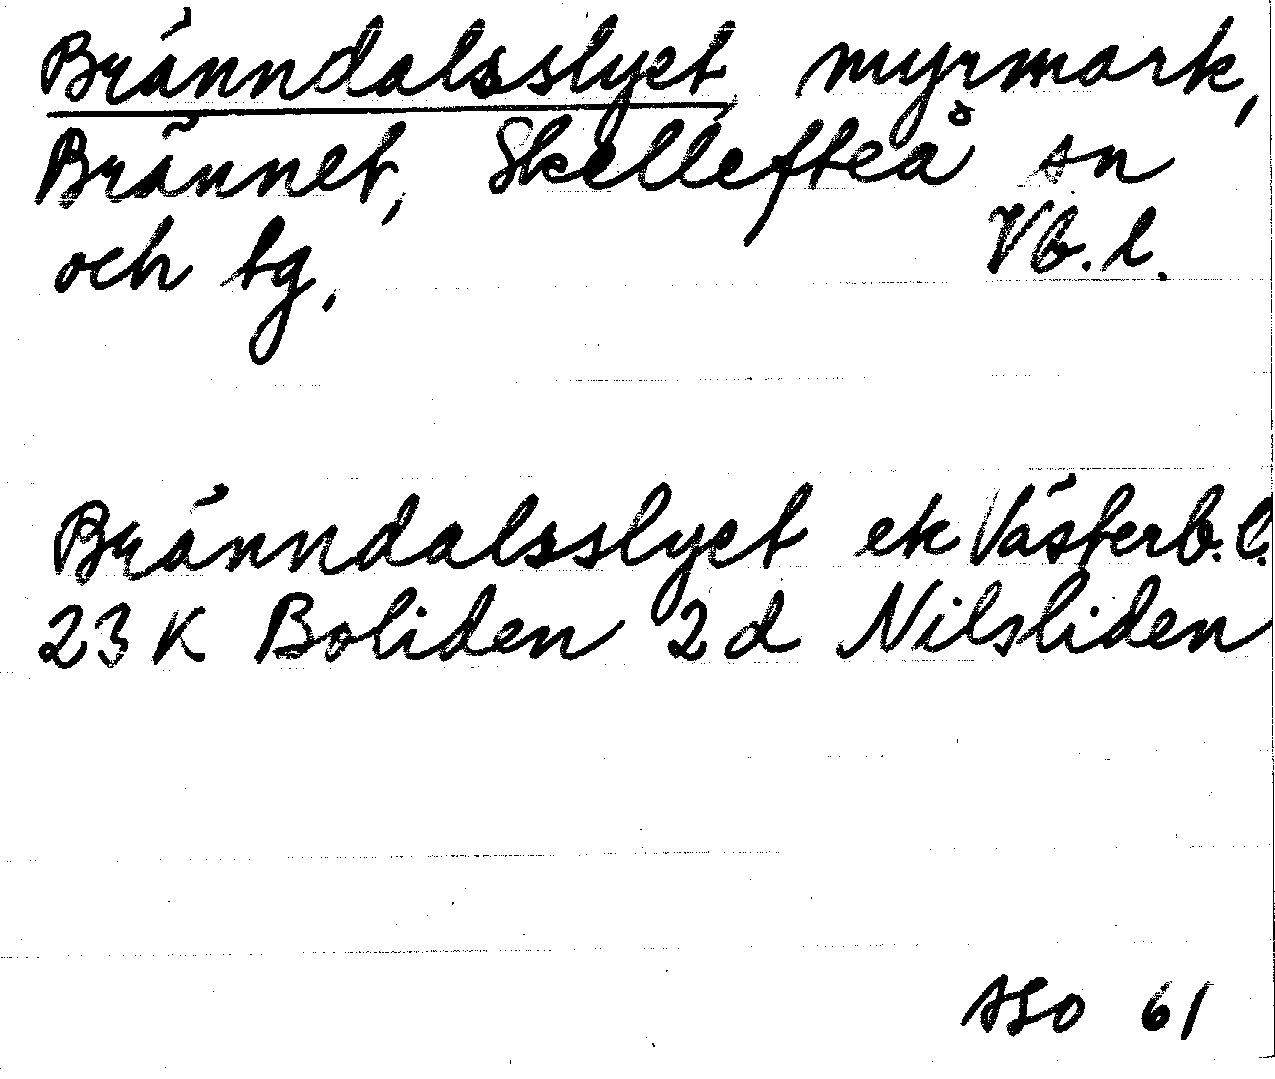 Bränndalsslyet, myrmark,
Brännet, Skellefteå sn
och tg, Vb.l.
Bränndalsslyet ek Västerb.l.
23 K Boliden 2d Nilsliden
ASO 61